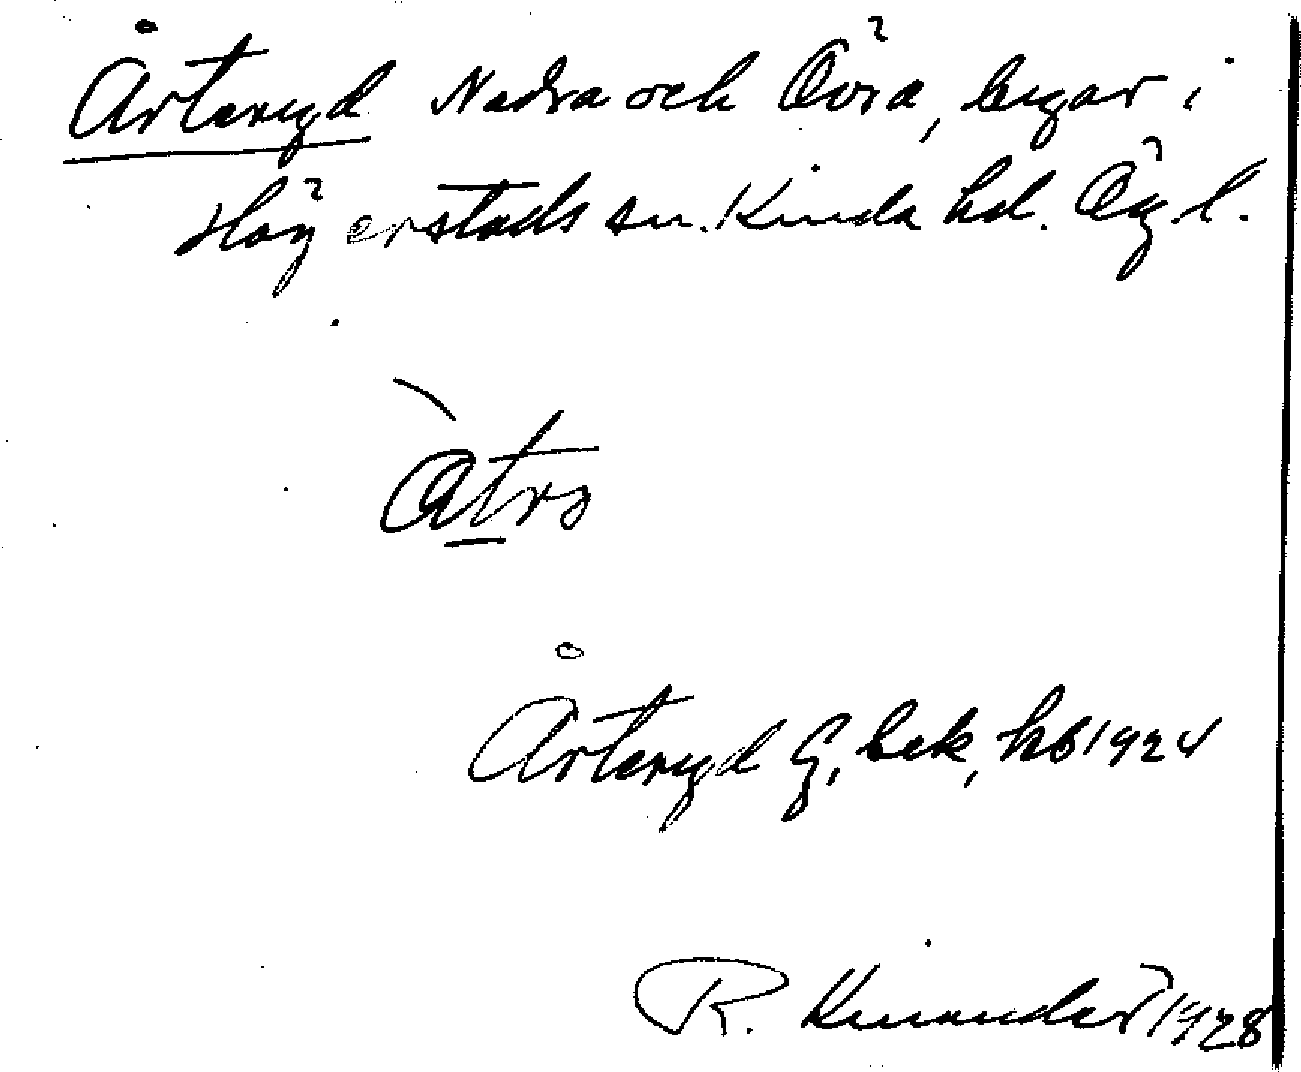 Årteryd Nedra och Övra, byar i
Hägerstads sn. Kinda hd. Ög. l.
åtrs
Årteryd G, bek, hb 1924
R. Kinander 1928